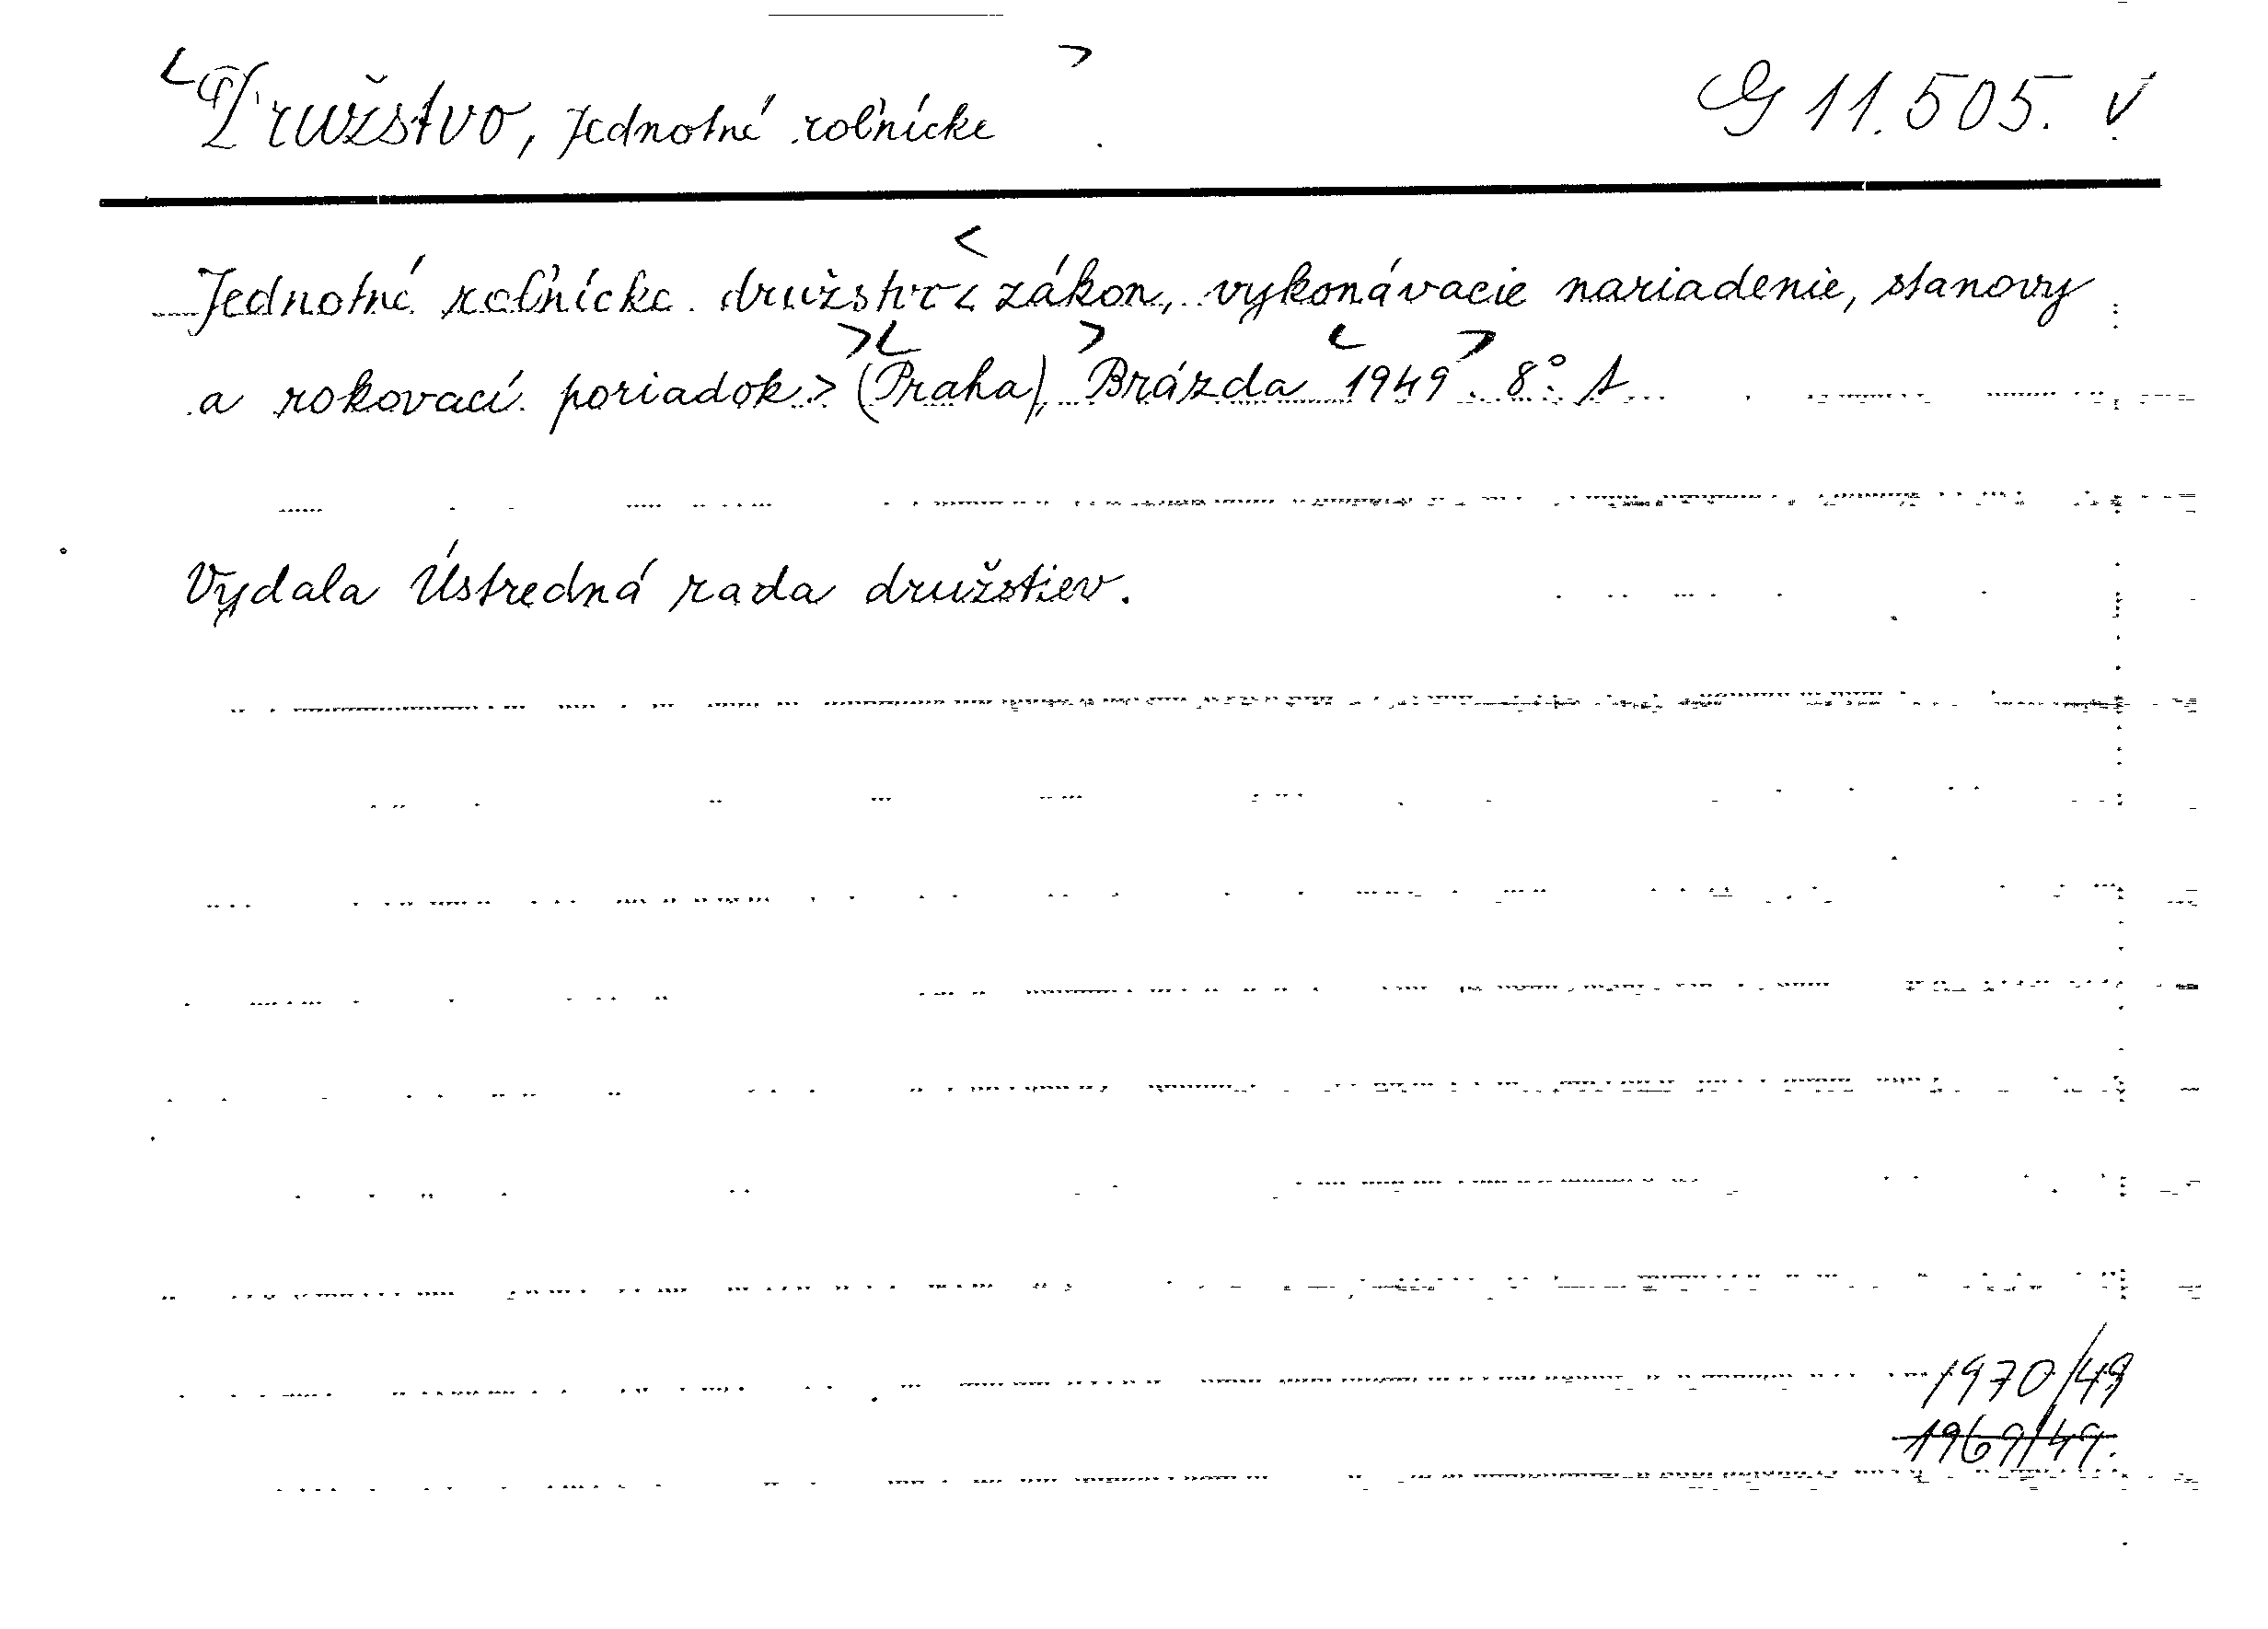 Družstvo, Jednotné roľnícke G 11.505. V
Jednotné roľnícke družstvo < zákon, vykonávacie nariadenie, stanovy
a rokovací poriadok > (Praha), Brázda 1949. 8°.
Vydala Ústredná rada družstiev.
1970/49
1969/49.